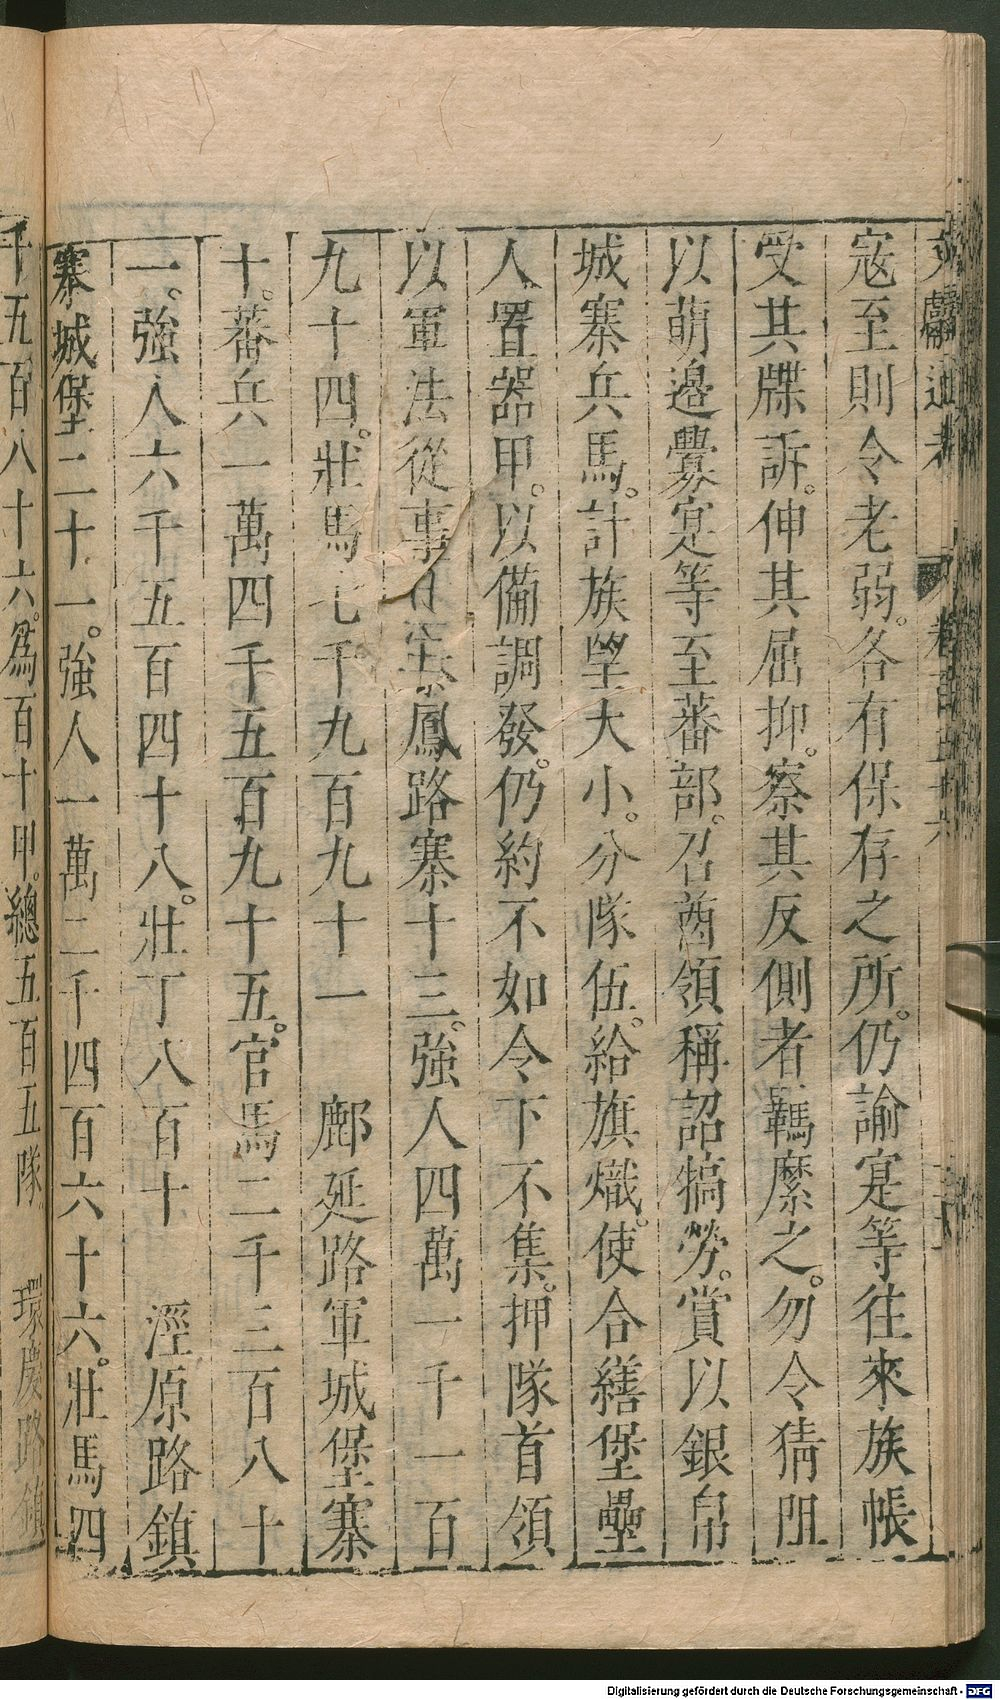 文獻通考 卷百五十六
寇至則令老弱。各有保存之所。仍諭寔等往來族帳
受其牒訴。伸其屈抑。察其反側者羈縻之。勿令猜阻
以萌邊釁寔等至蕃部。召酋領稱詔犒勞。賞以銀帛
城寨兵馬。計族望大小。分隊伍。給旗幟。使合繕堡壘
人置器甲。以備調發。仍約不如令下不集。押隊首領
以軍法從事 鳳路寨十三。強人四萬一千一百
九十四。壯馬七千九百九十一 鄜延路軍城堡寨
十。蕃兵一萬四千五百九十五。官馬二千三百八十
一。強人六千五百四十八。壯丁八百十 涇原路鎮
寨城堡二十一。強人一萬二千四百六十六。壯馬四
千五百八十六。爲百十甲。總五百五隊。 環慶路鎮
Digitalisierung gefördert durch die Deutsche Forschungsgemeinschaft - DFG